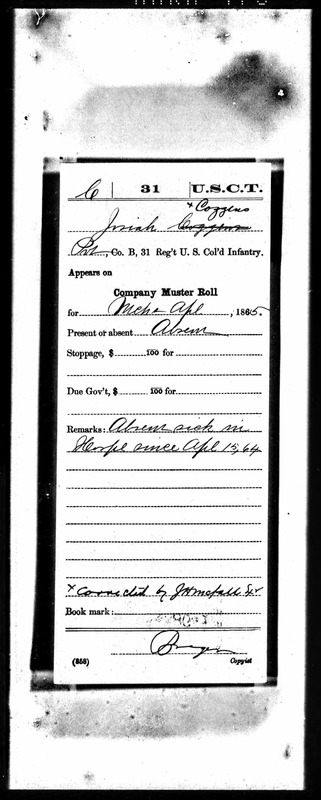 C | 31 | U.S.C.T.
x Cozzens
Josiah Cozzens
Pvt, Co. B, 31 Reg't U. S. Col'd Infantry.
Appears on
Company Muster Roll
for Mch & Apl, 1865.
Present or absent Absent
Stoppage, $ 100 for
Due Gov't, $ 100 for
Remarks: Absent sick in
Hospl since Apl 15, 64
x Corrected by
Book mark:
(858) Copyist